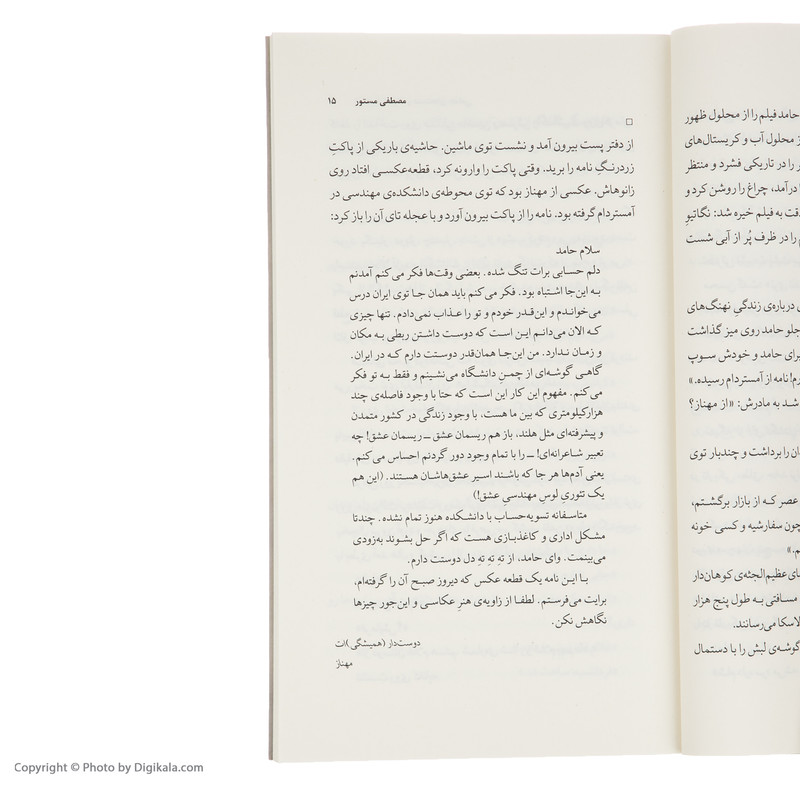 حامد فیلم را از محلول ظهور
از محلول آب و کریستال‌های
را در تاریکی فشرد و منتظر
درآمد، چراغ را روشن کرد و
دقت به فیلم خیره شد: نگاتیو
را در ظرف پُر از آبی شست
درباره‌ی زندگیِ نهنگ‌های
جلو حامد روی میز گذاشت
برای حامد و خودش سوپ
نامه از آمستردام رسیده.»
شد به مادرش: «از مهناز؟
را برداشت و چندبار توی
عصر که از بازار برگشتم،
چون سفارشیه و کسی خونه
عظیم‌الجثه‌ی کوهان‌دار
مسافتی به طول پنج هزار
می‌رسانند.
گوشه‌ی لبش را با دستمال
مصطفی مستور ۱۵
از دفتر پست بیرون آمد و نشست توی ماشین. حاشیه‌ی باریکی از پاکتِ
زردرنگِ نامه را برید. وقتی پاکت را وارونه کرد، قطعه‌عکسی افتاد روی
زانوهاش. عکسی از مهناز بود که توی محوطه‌ی دانشکده‌ی مهندسی در
آمستردام گرفته بود. نامه را از پاکت بیرون آورد و با عجله تای آن را باز کرد:
سلام حامد
دلم حسابی برات تنگ شده. بعضی وقت‌ها فکر می‌کنم آمدنم
به این‌جا اشتباه بود. فکر می‌کنم باید همان جا توی ایران درس
می‌خواندم و این‌قدر خودم و تو را عذاب نمی‌دادم. تنها چیزی
که الان می‌دانم این است که دوست داشتن ربطی به مکان
و زمان ندارد. من این‌جا همان‌قدر دوستت دارم که در ایران.
گاهی گوشه‌ای از چمنِ دانشگاه می‌نشینم و فقط به تو فکر
می‌کنم. مفهوم این کار این است که حتا با وجود فاصله‌ی چند
هزارکیلومتری که بین ما هست، با وجود زندگی در کشور متمدن
و پیشرفته‌ای مثل هلند، باز هم ریسمان عشق ــ ریسمان عشق! چه
تعبیر شاعرانه‌ای! ــ را با تمام وجود دور گردنم احساس می‌کنم.
یعنی آدم‌ها هر جا که باشند اسیر عشق‌هاشان هستند. (این هم
یک تئوریِ لوسِ مهندسیِ عشق!)
متاسفانه تسویه‌حساب با دانشکده هنوز تمام نشده. چندتا
مشکل اداری و کاغذبازی هست که اگر حل بشوند به‌زودی
می‌بینمت. وای حامد، از تهِ تهِ تهِ دل دوستت دارم.
با این نامه یک قطعه عکس که دیروز صبح آن را گرفته‌ام،
برایت می‌فرستم. لطفا از زاویه‌ی هنرِ عکاسی و این‌جور چیزها
نگاهش نکن.
دوست‌دار (همیشگی)ات
مهناز
Copyright © Photo by Digikala.com